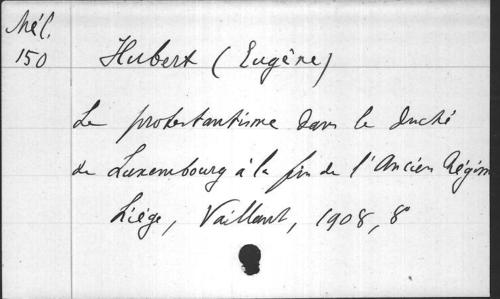 Mél.
150
Hubert (Eugène)
Le protestantisme dans le duché
de Luxembourg à la fin de l'Ancien Régim
Liége, Vaillant, 1908, 8°